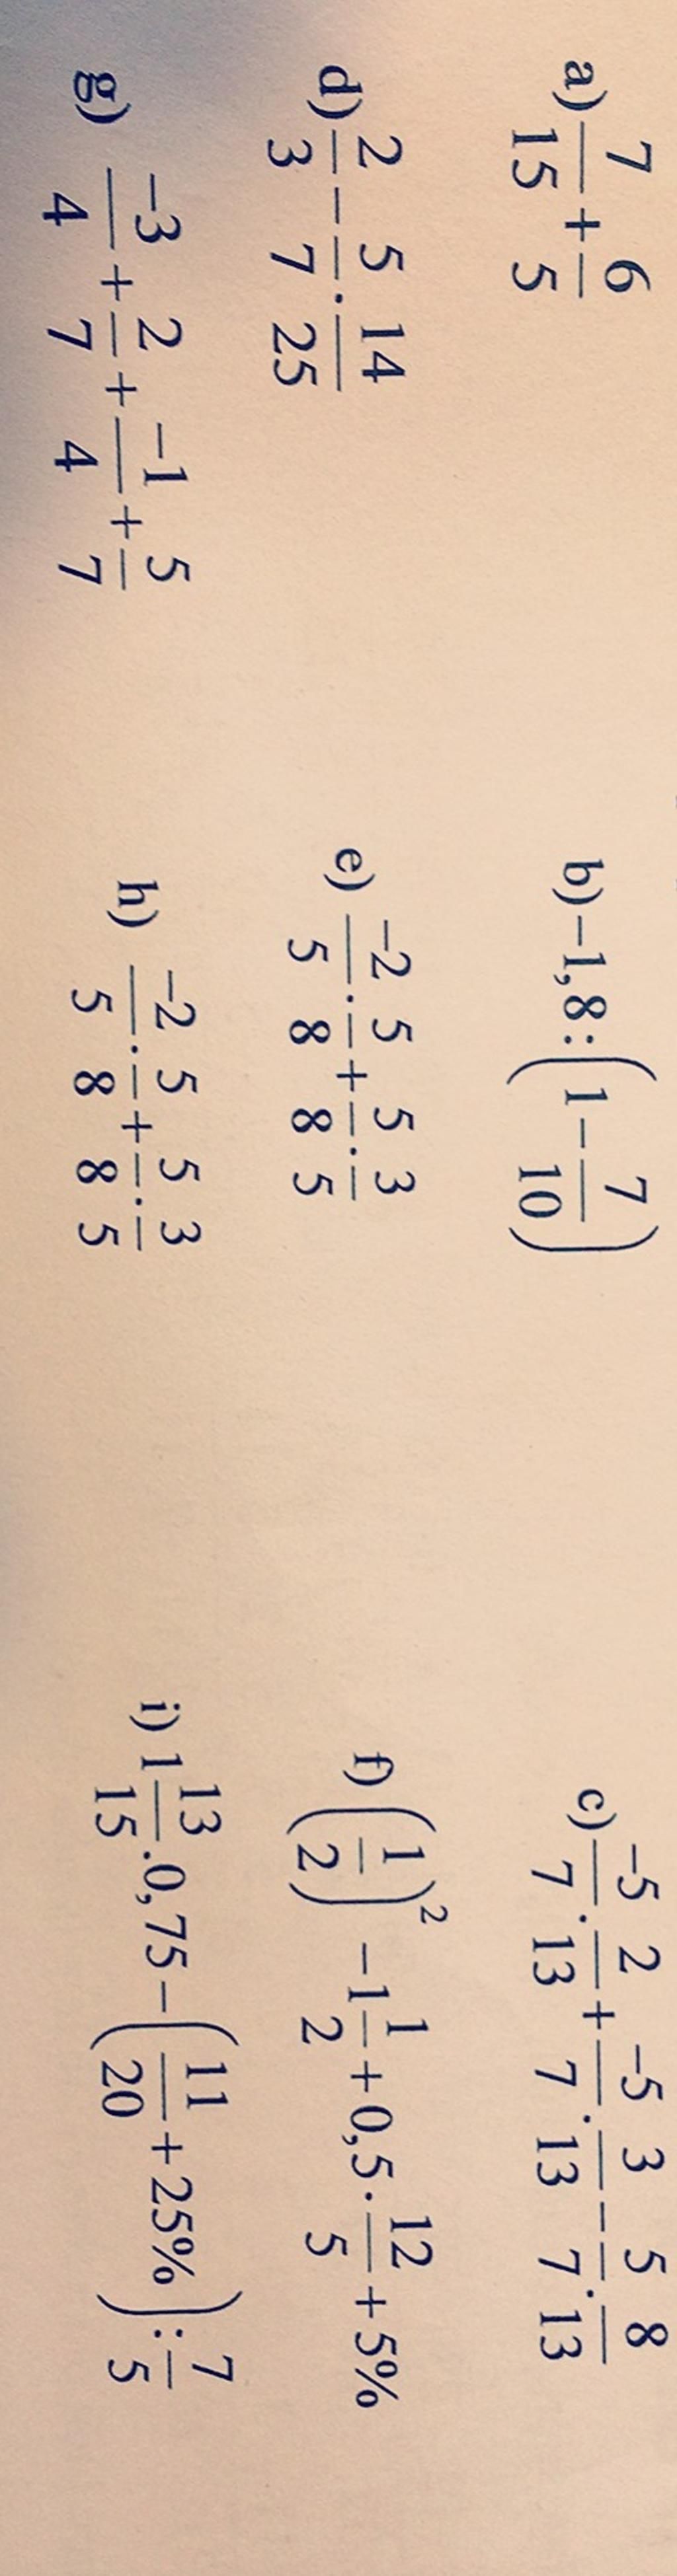 a) 7/15 + 6/5 b) −1,8 : (1 − 7/10) c) −5/7 . 2/13 + −5/7 . 3/13 − 5/7 . 8/13
d) 2/3 − 5/7 . 14/25 e) −2/5 . 5/8 + 5/8 . 3/5 f) (1/2)² − 1 1/2 + 0,5 . 12/5 + 5%
g) −3/4 + 2/7 + −1/4 + 5/7 h) −2/5 . 5/8 + 5/8 . 3/5 i) 1 13/15 . 0,75 − (11/20 + 25%) : 7/5